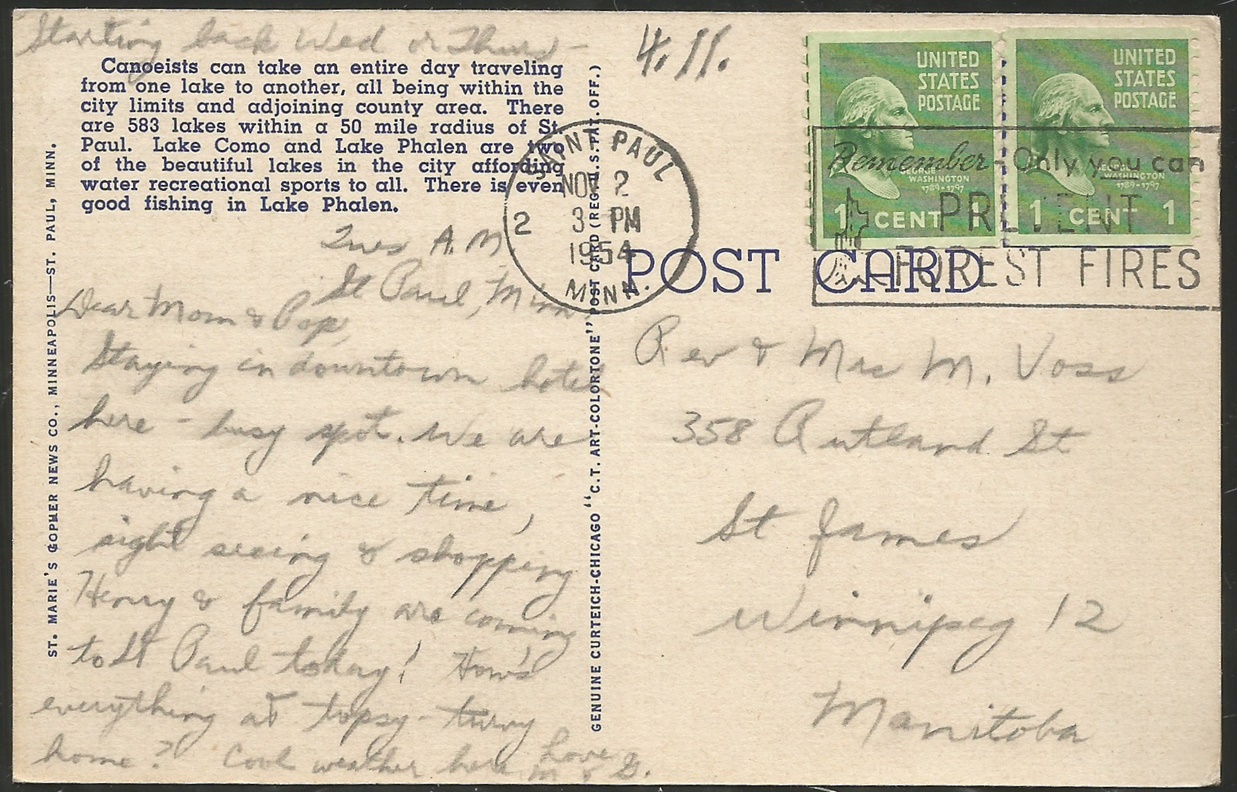 Starting back Wed or Thurs -
Canoeists can take an entire day traveling
from one lake to another, all being within the
city limits and adjoining county area. There
are 583 lakes within a 50 mile radius of St.
Paul. Lake Como and Lake Phalen are two
of the beautiful lakes in the city affording
water recreational sports to all. There is even
good fishing in Lake Phalen.
Tues A.M
St Paul, Minn
Dear Mom & Pop,
Staying in downtown hotel
here - busy spot. We are
having a nice time,
sight seeing & shopping
Henry & family are coming
to St Paul today! How's
everything at topsy-turvy
home? Cool weather here
Love
M & G.
ST. MARIE'S GOPHER NEWS CO., MINNEAPOLIS—ST. PAUL, MINN.
GENUINE CURTEICH-CHICAGO "C.T. ART-COLORTONE" POST CARD (REG. U.S. PAT. OFF.)
4.11.
SAINT PAUL
NOV 2
2 3 - PM
1954
MINN.
UNITED
STATES
POSTAGE
GEORGE
WASHINGTON
1789-1797
1 CENT 1
UNITED
STATES
POSTAGE
GEORGE
WASHINGTON
1789-1797
1 CENT 1
Remember - Only you can
PREVENT
FOREST FIRES
POST CARD
Rev & Mrs M. Voss
358 Rutland St
St James
Winnipeg 12
Manitoba